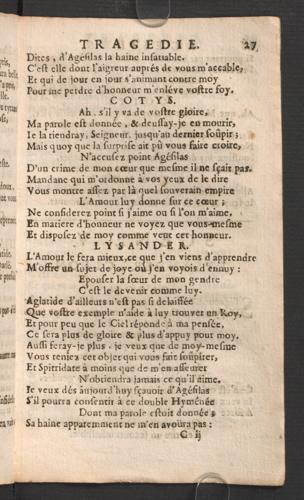 TRAGEDIE. 27
Dites, d'Agésilas la haine insatiable.
C'est elle dont l'aigreur auprés de vous m'accable,
Et qui de jour en jour s'animant contre moy
Pour me perdre d'honneur m'enléve vostre foy.
COTYS.
Ah, s'il y va de vostre gloire,
Ma parole est donnée, & deussay-je en mourir,
Ie la tiendray, Seigneur, jusqu'au dernier soûpir;
Mais quoy que la surprise ait pû vous faire croire,
N'accusez point Agésilas
D'un crime de mon cœur que mesme il ne sçait pas.
Mandane qui m'ordonne à vos yeux de le dire
Vous montre assez par là quel souverain empire
L'Amour luy donne sur ce cœur;
Ne considerez point si j'aime ou si l'on m'aime,
En matiere d'honneur ne voyez que vous-mesme
Et disposez de moy comme veut cet honneur.
LYSANDER.
L'Amour le fera mieux, ce que j'en viens d'apprendre
M'offre un sujet de joye où j'en voyois d'ennuy:
Epouser la sœur de mon gendre
C'est le devenir comme luy.
Aglatide d'ailleurs n'est pas si delaissée
Que vostre exemple n'aide à luy trouver un Roy,
Et pour peu que le Ciel réponde à ma pensée,
Ce sera plus de gloire & plus d'appuy pour moy.
Aussi feray-je plus, je veux que de moy-mesme
Vous teniez cet objet qui vous fait soûpirer,
Et Spitridate à moins que de m'en asseurer
N'obtiendra jamais ce qu'il aime.
Je veux dés aujourd'huy sçavoir d'Agésilas
S'il pourra consentir à ce double Hyménée
Dont ma parole estoit donnée;
Sa haine apparemment ne m'en avoüra pas:
C ij